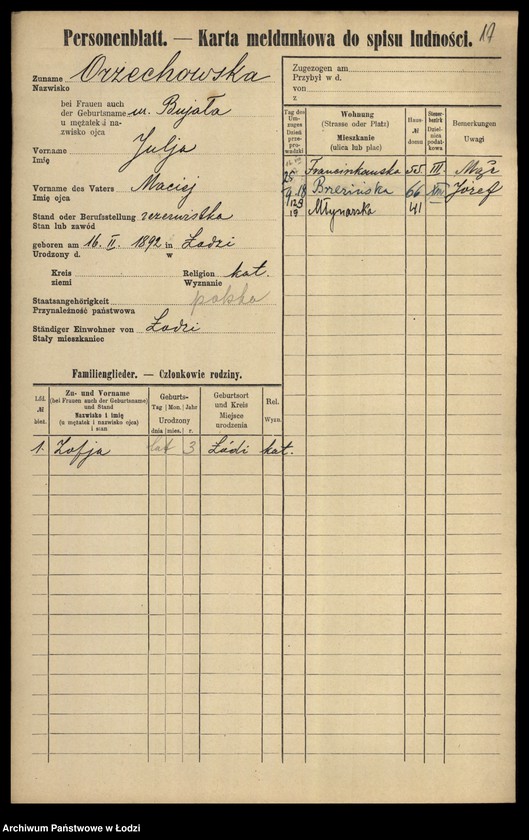 19
Personenblatt. — Karta meldunkowa do spisu ludności.
Zuname Orzechowska
Nazwisko
bei Frauen auch
der Geburtsname ur. Bujała
u mężatek i na-
zwisko ojca
Vorname Julja
Imię
Vorname des Vaters Maciej
Imię ojca
Stand oder Berufsstellung rezerwistka
Stan lub zawód
geboren am 16. II. 1892 in Łodzi
Urodzony d. w
Kreis Religion kat.
ziemi Wyznanie
Staatsangehörigkeit polska
Przynależność państwowa
Ständiger Einwohner von Łodzi
Stały mieszkaniec
Zugezogen am
Przybył w d.
von
z
Tag des Um-zuges Dzień przepro-wadzki
Wohnung (Strasse oder Platz) Mieszkanie (ulica lub plac)
Haus- № domu
Steuer-bezirk Dzielnica podatkowa
Bemerkungen Uwagi
25 Franciszkańska 55 III. Mąż
9.18 Brzezińska 66 VIII Józef
19 Młynarska 41
Familienglieder. — Członkowie rodziny.
Lfd. № bież.
Zu- und Vorname (bei Frauen auch der Geburtsname) und Stand Nazwisko i imię (u mężatek i nazwisko ojca) i stan
Geburts- Tag Mon. Jahr Urodzony dnia mies. r.
Geburtsort und Kreis Miejsce urodzenia
Rel. Wyzn.
1. Zofja lat 3 Łódź kat.
Archiwum Państwowe w Łodzi